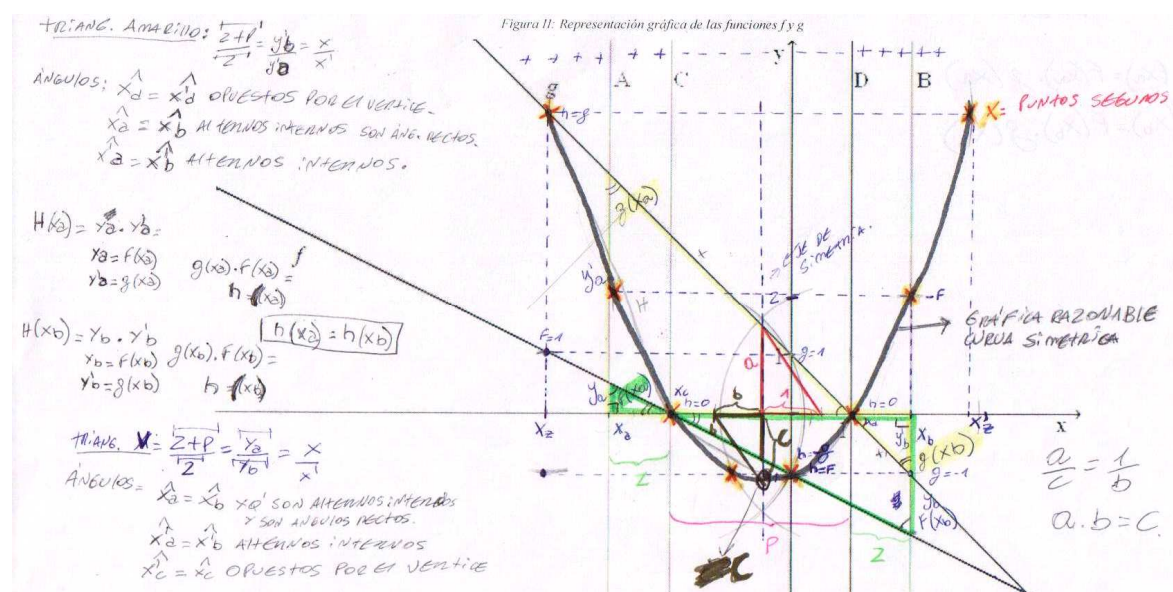 Figura II: Representación gráfica de las funciones f y g
TRIANG. AMARILLO: Z+P/Z = y'b/y'a = x/x'
ÁNGULOS: Xd = X'd OPUESTOS POR El VERTICE.
Xa = Xb AlTERNOS iNTERNOS SON ANG. RECTOS.
Xa = Xb AlTERNOS iNTERNOS.
H(xa) = Ya . Y'a =
Ya = F(xa)
Y'a = g(xa)
g(xa) . F(xa) =
h = (xa)
H(xb) = Yb . Y'b =
Yb = F(xb)
Y'b = g(xb)
g(xb) . F(xb) =
h = (xb)
h(xa) = h(xb)
TRIANG. V = Z+P/Z = Ya/Yb = X/X'
ÁNGULOS =
Xa = Xb XQ' SON AlTERNOS iNTERNOS
Y SON ANGULOS RECTOS.
X'a = X'b AlTERNOS iNTERNOS
X'c = Xc OPUESTOS POR El VERTICE
+ + + + + + +
+ + + + ++
A
C
y
D
B
h=g
X= PUNTOS SEGUROS
g(xa)
x
EJE DE
SIMETRIA.
y'a
H
2
-F
GRÁFICA RAZONABLE
CURVA SiMETRICA
F=1
g=1
a
1
Ya
F(xa)
Xc
h=0
b
1
h=0
Xd
x
Xz
Xa
C
y'b
Xb
X'z
g(xb)
g=-1
h=-g
h=F
Z
Yb
F(xb)
P
Z
C
a/c = 1/b
a.b=C.